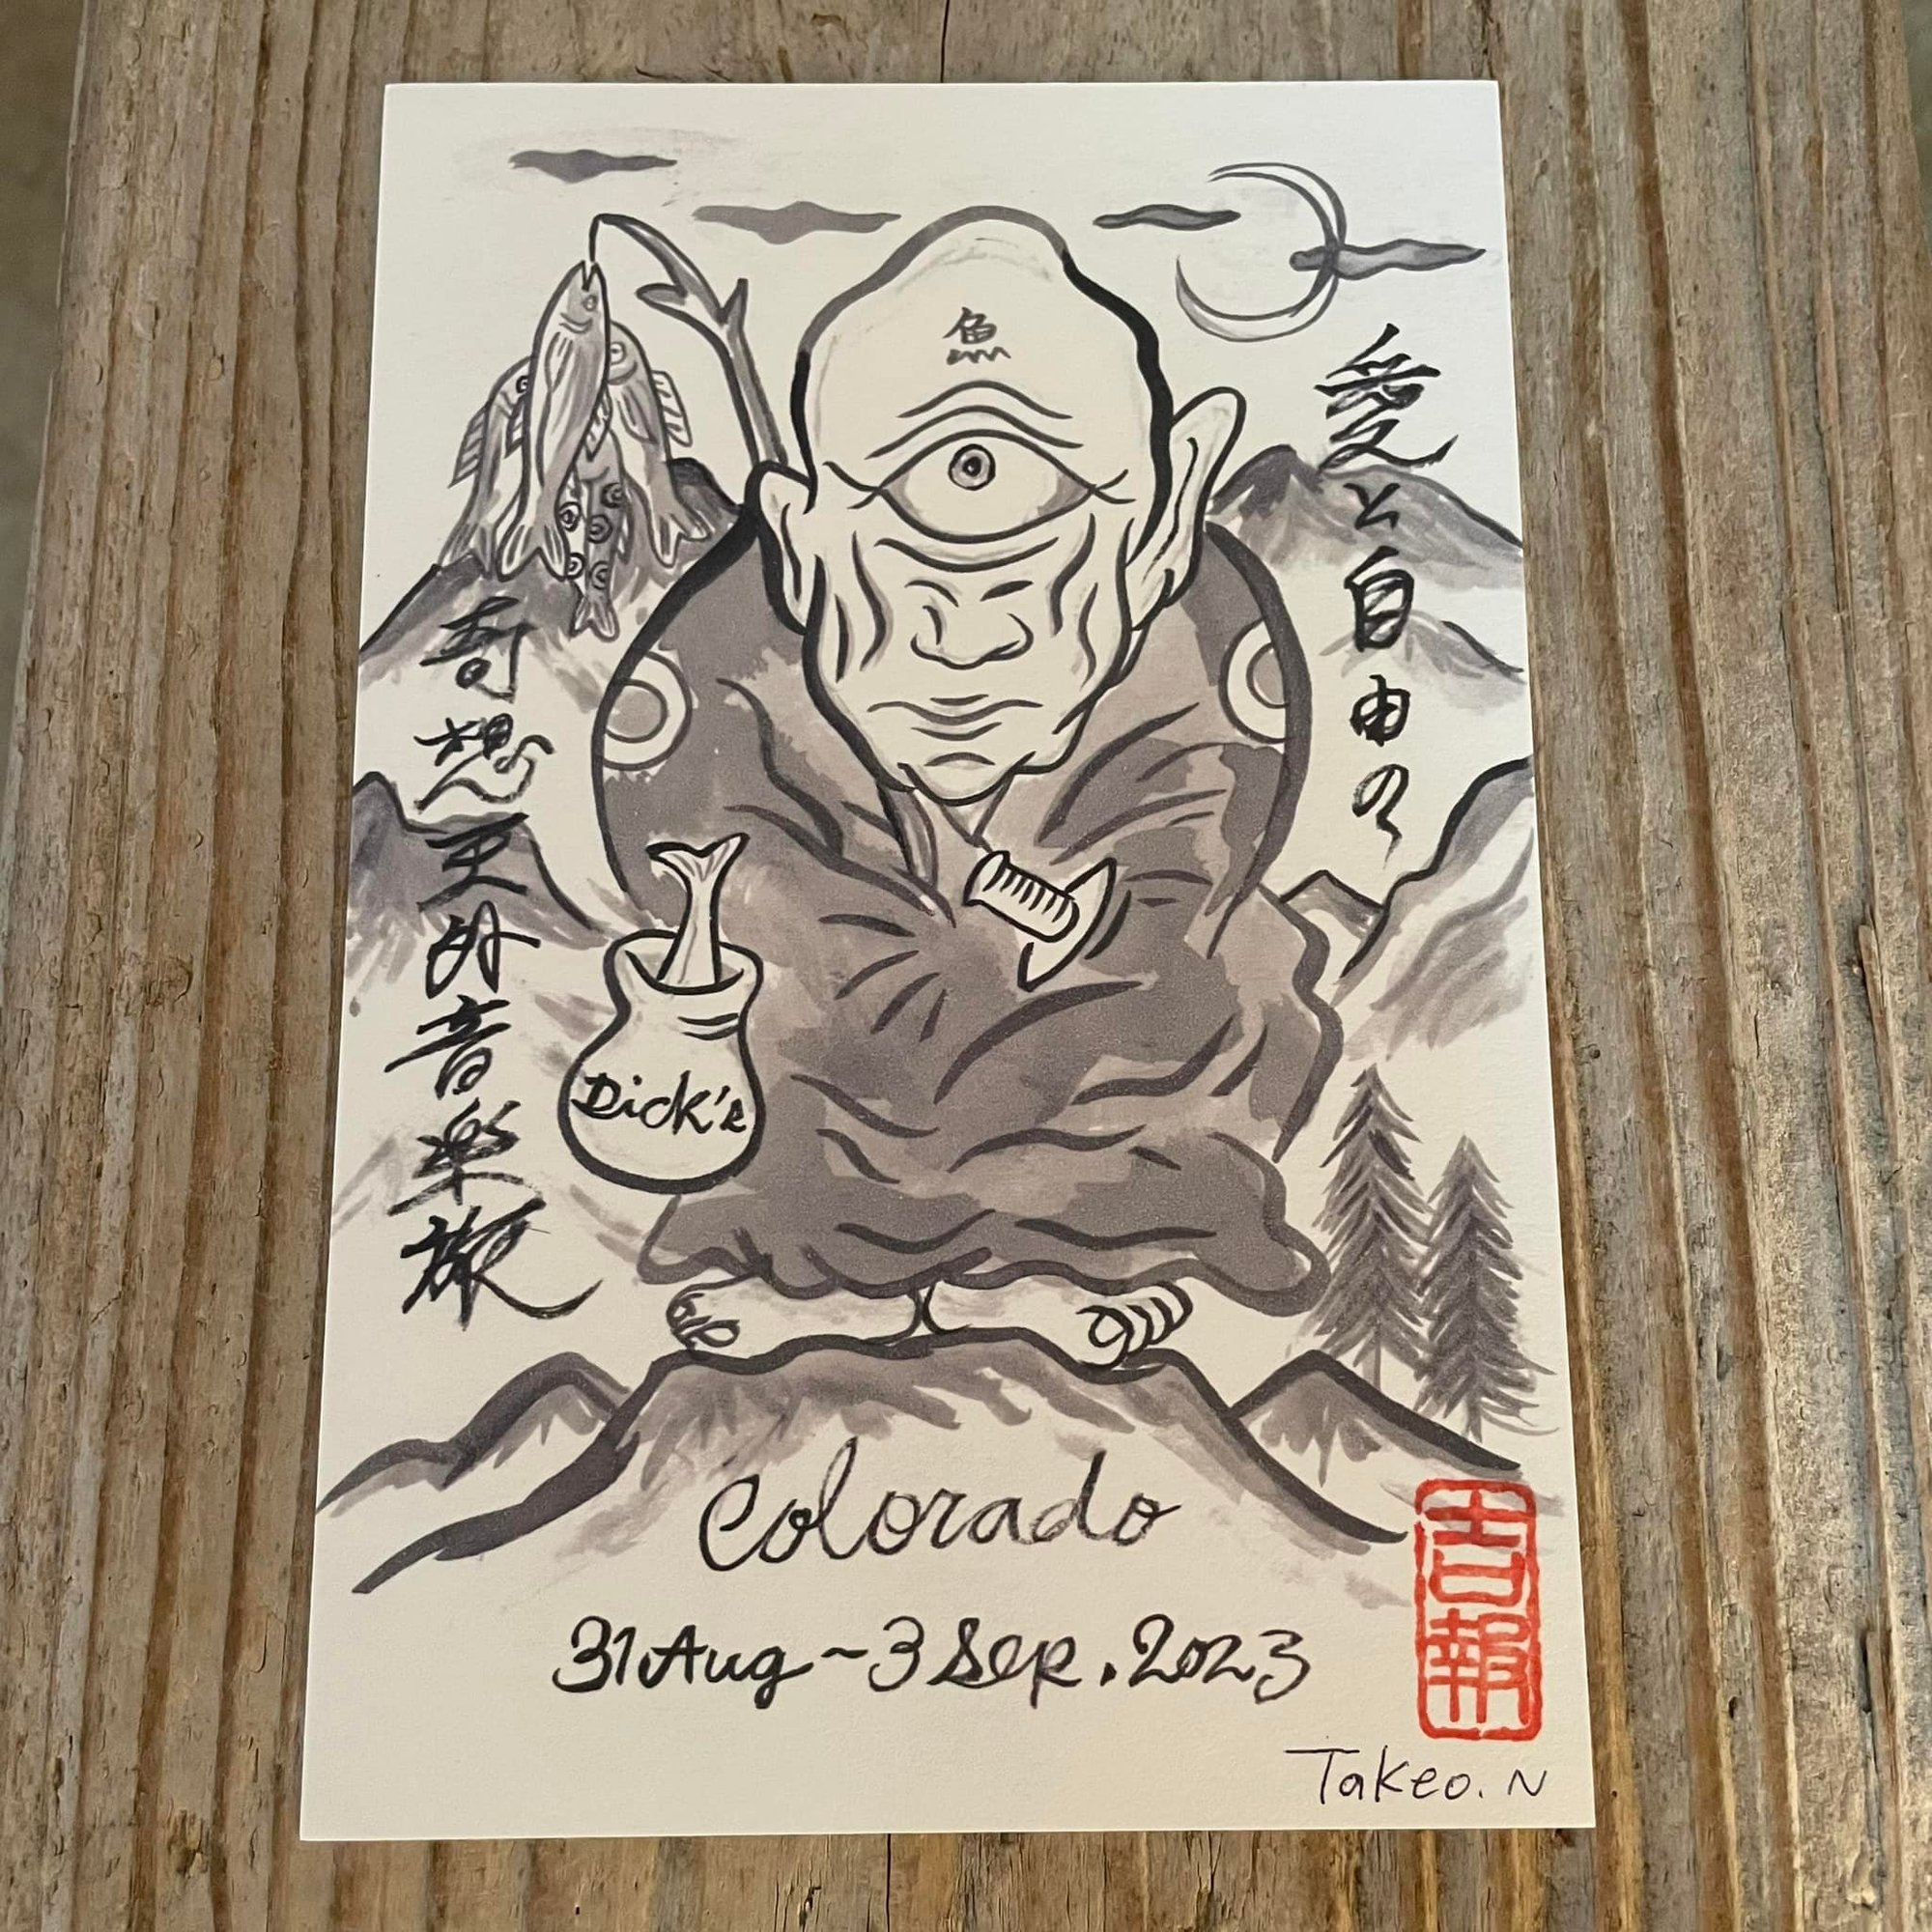 魚
愛と自由の
奇想天外音楽旅
Dick's
Colorado
31 Aug ~ 3 Sep. 2023
吉報
Takeo. N